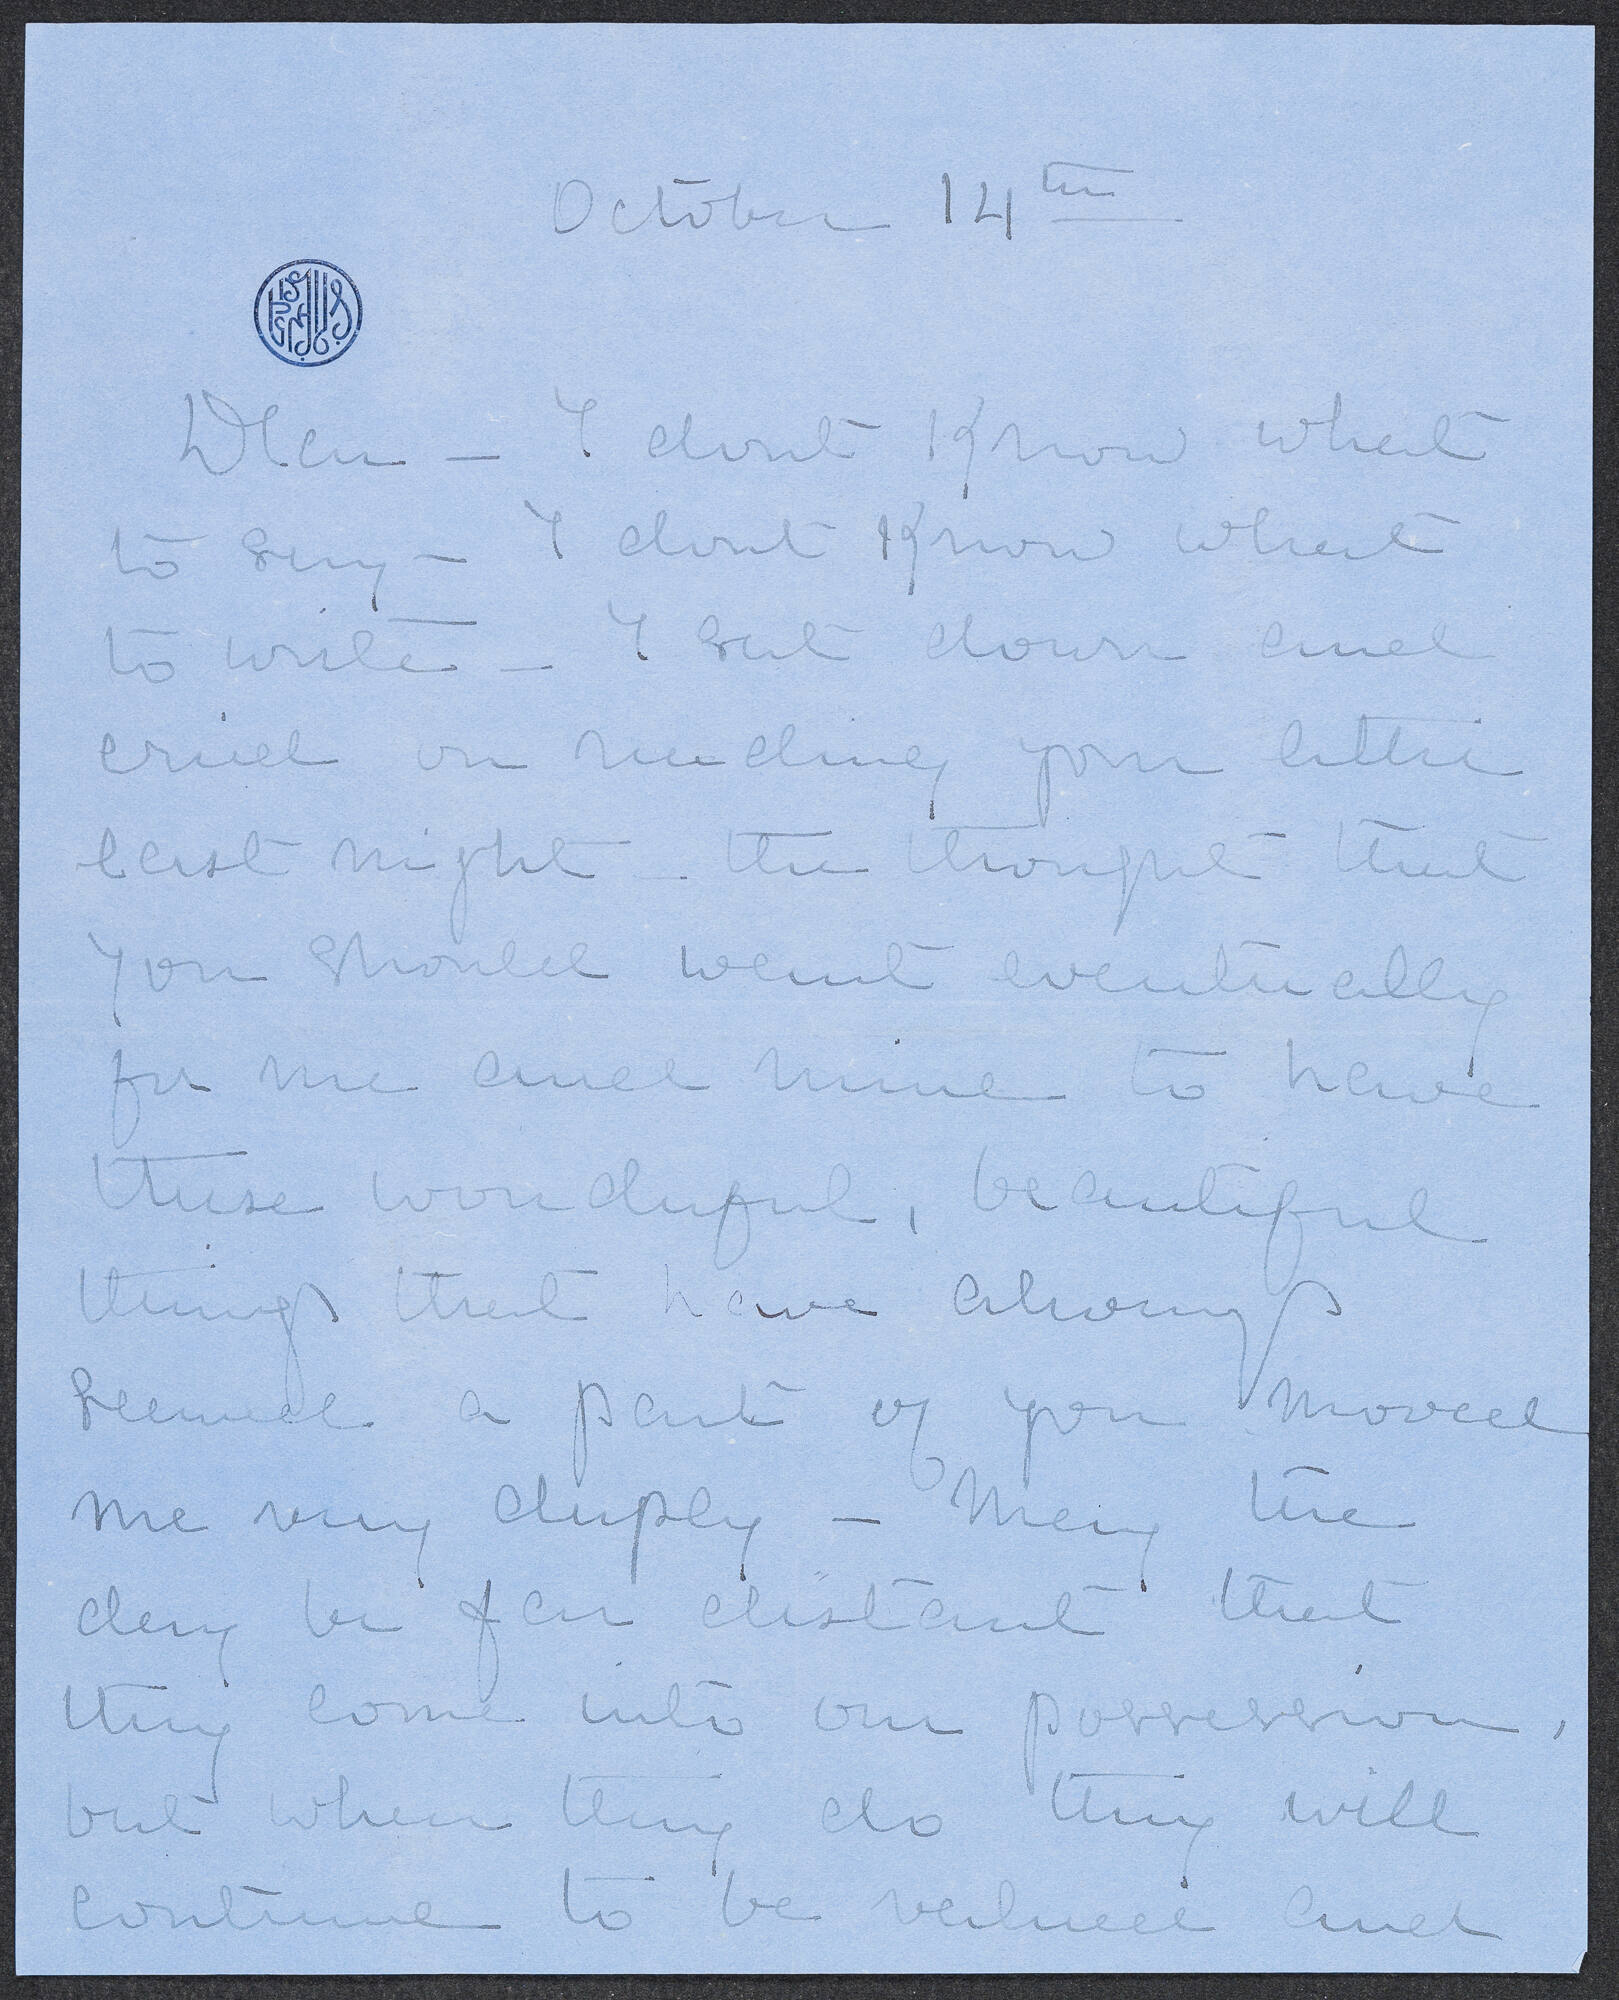 October 14th
Dear — I dont Know what
to say — I dont Know what
to write — I sat down and
cried on reading your letter
last night — the thought that
you should want eventually
for me and mine to have
these wonderful, beautiful
things that have always
seemed a part of you moved
me very deeply — May the
day be far distant that
they come into our possession,
but when they do they will
continue to be valued and